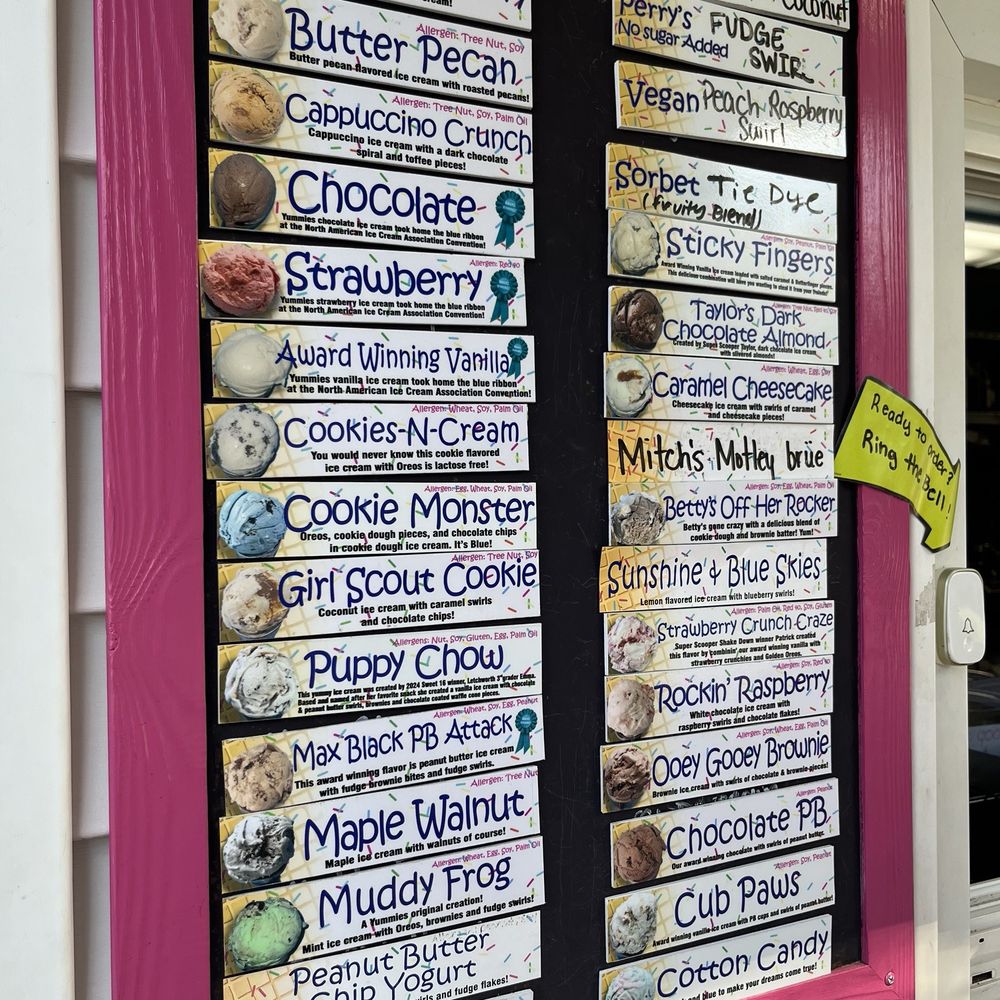 Butter Pecan
Allergen: Tree Nut, Soy
Butter pecan flavored ice cream with roasted pecans!
Allergen: Tree Nut, Soy, Palm Oil
Cappuccino Crunch
Cappuccino ice cream with a dark chocolate
spiral and toffee pieces!
Chocolate
Yummies chocolate ice cream took home the blue ribbon
at the North American Ice Cream Association Convention!
Allergen: Red 40
Strawberry
Yummies strawberry ice cream took home the blue ribbon
at the North American Ice Cream Association Convention!
Award Winning Vanilla
Yummies vanilla ice cream took home the blue ribbon
at the North American Ice Cream Association Convention!
Allergen: Wheat, Soy, Palm Oil
Cookies-N-Cream
You would never know this cookie flavored
ice cream with Oreos is lactose free!
Allergen: Egg, Wheat, Soy, Palm Oil
Cookie Monster
Oreos, cookie dough pieces, and chocolate chips
in cookie dough ice cream. It's Blue!
Allergen: Tree Nut, Soy
Girl Scout Cookie
Coconut ice cream with caramel swirls
and chocolate chips!
Allergens: Nut, Soy, Gluten, Egg, Palm Oil
Puppy Chow
This yummy ice cream was created by 2024 Sweet 16 winner, Letchworth 3rd grader Emma.
Based and named after her favorite snack she created a vanilla ice cream with chocolate
& peanut butter swirls, brownies and chocolate coated waffle cone pieces.
Allergen: Wheat, Soy, Egg, Peanut
Max Black PB Attack
This award winning flavor is peanut butter ice cream
with fudge brownie bites and fudge swirls.
Allergen: Tree Nut
Maple Walnut
Maple ice cream with walnuts of course!
Allergen: Wheat, Egg, Soy, Palm Oil
Muddy Frog
A Yummies original creation!
Mint ice cream with Oreos, brownies and fudge swirls!
Peanut Butter
Chip Yogurt
swirls and fudge flakes!
Coconut
Perry's
No sugar Added
FUDGE
SWIRL
Vegan Peach Raspberry
Swirl
Sorbet Tie Dye
(Fruity Blend)
Allergen: Soy, Peanut, Palm Oil
Sticky Fingers
Award Winning Vanilla ice cream loaded with salted caramel & Butterfinger pieces.
This delicious combination will have you wanting to steal it from your friends!
Allergen: Tree Nut, Red 40, Soy
Taylor's Dark
Chocolate Almond
Created by Super Scooper Taylor, dark chocolate ice cream
with slivered almonds!
Allergen: Wheat, Egg, Soy
Caramel Cheesecake
Cheesecake ice cream with swirls of caramel
and cheesecake pieces!
Mitch's Motley brüe
Allergen: Egg, Wheat, Soy, Palm Oil
Betty's Off Her Rocker
Betty's gone crazy with a delicious blend of
cookie dough and brownie batter! Yum!
Sunshine & Blue Skies
Lemon flavored ice cream with blueberry swirls!
Allergen: Palm Oil, Red 40, Soy, Gluten
Strawberry Crunch-Craze
Super Scooper Shake Down winner Patrick created
this flavor by combinin' our award winning vanilla with
strawberry crunchies and Golden Oreos.
Allergen: Soy, Red 40
Rockin' Raspberry
White chocolate ice cream with
raspberry swirls and chocolate flakes!
Allergen: Soy, Wheat, Egg, Palm Oil
Ooey Gooey Brownie
Brownie ice cream with swirls of chocolate & brownie pieces!
Allergen: Peanut
Chocolate PB
Our award winning chocolate with swirls of peanut butter.
Allergen: Soy, Peanut
Cub Paws
Award winning vanilla ice cream with PB cups and swirls of peanut butter!
Cotton Candy
and blue to make your dreams come true!
Ready to order?
Ring the Bell!